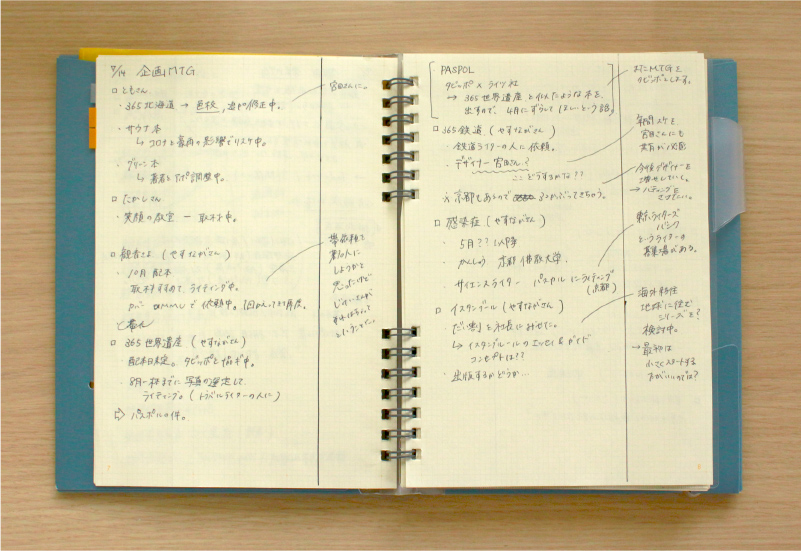 8/14 企画MTG
□ ともさん
・365北海道 → 色校, 追や修正中。
宮田さんに。
・サウナ本
↳ コロナと豪雨の影響でリスケ中。
・グリーン本
↳ 著者とアポ調整中。
□ たかしさん
・笑顔の教室 ー 取材中。
□ 観音さま (やすながさん)
・10月配本
取材すすめて、ライティング中。
で依頼中。
□ 365世界遺産 (やすながさん)
・配本日未定。タビッポと協ギ中。
・8月一杯までに写真の選定して
ライティング。(トラベルライターの人に)
⇨ パスポルの件。
帯依頼を
しようかと
思ったけど
PASPOL
タビッポ × ライツ社
→ 365世界遺産と似たような本を
出すので、4月にずらしてほしいという話
またMTGを
タビッポとします。
□ 365鉄道 (やすながさん)
・鉄道ライターの人に依頼。
・デザイナー宮田さん?
ここどうするかな??
※京都もあるので かぶってきちゃう。
年間スケを
宮田さんにも
共有が必要
今後デザイナーを
増やしていく。
→
□ 感染症 (やすながさん)
・5月?? 以降
・かんしゅう 京都 大学。
・サイエンスライター パスカルにライティング
(京都)
東京ライターズ
バンク
というライターの
募集場がある。
□ イスタンブール (やすながさん)
・だい割を社長にみせた。
↳ イスタンブールのエッセイ&ガイド
コンセプトは??
・出版するかどうか…
海外移住
地球に住む
シリーズを?
検討中。
→ 最初は
小さくスタートする
方がいいのでは?